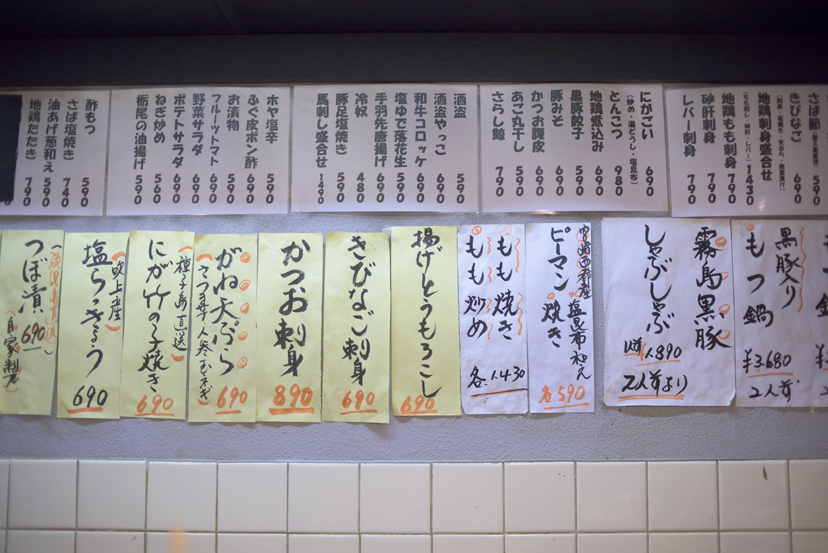 さば節 590
きびなご 690
地鶏刺身盛合せ 1430
(もも刺し・砂肝・レバー)
地鶏もも刺身 790
砂肝刺身 790
レバー刺身 790
にがごい 690
とんこつ 980
地鶏煮込み 690
黒豚餃子 590
豚みそ 690
かつお腹皮 690
あご丸干し 590
さらし鯨 790
酒盗 590
酒盗やっこ 690
和牛コロッケ 690
塩ゆで落花生 590
手羽先唐揚げ 690
冷奴 480
豚足塩焼き 590
馬刺し盛合せ 1490
ホヤ塩辛 590
ふぐ皮ポン酢 690
お漬物 590
フルーツトマト 690
野菜サラダ 690
ポテトサラダ 690
ねぎ炒め 560
栃尾の油揚げ 590
酢もつ 590
さば塩焼き 740
油あげ葱和え 590
地鶏たたき 790
黒豚入り
もつ鍋
¥3.680
2人前
霧島黒豚
しゃぶしゃぶ
1人890
2人前より
塩昆布和え
ピーマン焼き
各590
もも焼き
もも炒め
各1430
揚げとうもろこし
690
きびなご刺身
690
かつお刺身
890
がね天ぷら
(さつま芋 人参 玉ネギ)
690
(種子島直送)
にが竹の子焼き
690
(吹上産)
塩らっきょう
690
つぼ漬 690
(自家製)